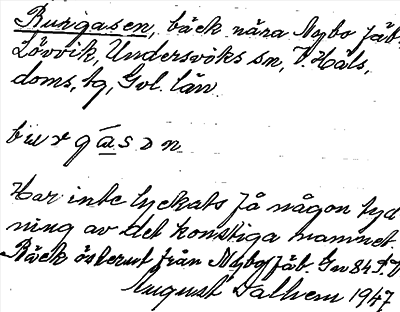 Burgasen, bäck nära Nybo fäb.
Lövvik, Undersviks sn, V. Häls,
doms, tg, Gvl. län.
burgasɔn
Har inte lyckats få någon tyd
ning av det konstiga namnet.
Bäck österut från Nybo fäb. Gu 84
August Dalhem 1947